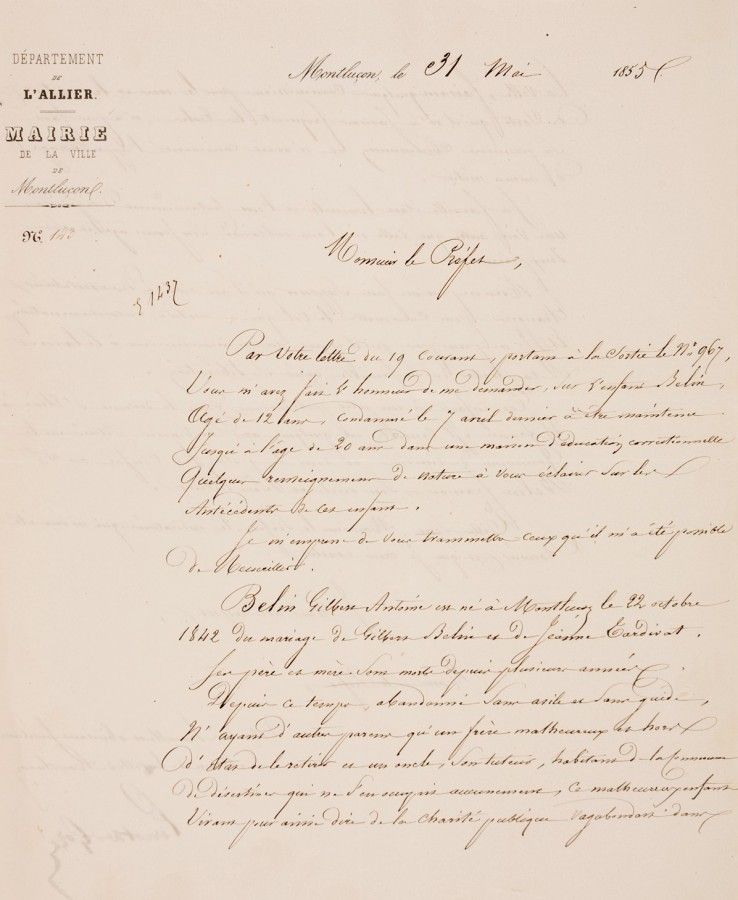 DÉPARTEMENT
DE
L'ALLIER.
MAIRIE
DE LA VILLE
DE
Montluçon.
N°. 143
Montluçon, le 31 Mai 1855
Monsieur le Préfet,
1437
Par Votre lettre du 19 Courant, portant à la Sortie le N° 967,
Vous m'avez fait l'honneur de me demander, sur l'enfant Belin,
Agé de 12 ans, condamné le 7 avril dernier à être maintenu
Jusqu'à l'âge de 20 ans dans une maison d'éducation correctionnelle
Quelques renseignements de nature à Vous éclairer sur les
Antécédents de cet enfant.
Je m'empresse de Vous transmettre ceux qu'il m'a été possible
de Recueillir.
Belin Gilbert Antoine est né à Montluçon le 22 octobre
1842 du mariage de Gilbert Belin et de Jeanne Tardivat.
Ses père et mère sont morts depuis plusieurs années.
Depuis ce temps, abandonné Sans asile et Sans guide,
N'ayant d'autres parents qu'un frère malheureux et hors
d'état de le retirer et un oncle, Son tuteur, habitant de la commune
de désertines qui ne s'en occupait aucunement, ce malheureux enfant
Vivant pour ainsi dire de la Charité publique Vagabondait dans